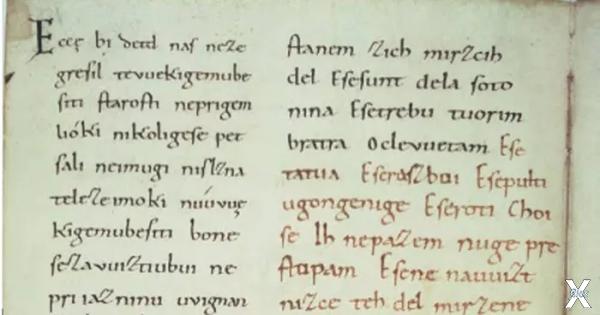 Eccȩ bi detd naſ neze
greſil tevuekigemube
ſiti ſtaroſti neprigem
lióki nikoligeſe pet
ſali neimugi niſlzna
telezeimoki nivúvvȩ
kigemubeſiti bone
ſezavuiztiubui ne
priiazninu uvignan
ſtanem zich mirzcih
del Eſeſunt dela ſoto
nina Eſetrebu tuorim
bratra Oclevuetam Eſe
tatua Eſeraſzboi Eſepulti
ugongenige Eſeroti Choi
ſe Ih nepazem nuge pre
ſtopam Eſene nauuizt
nizce teh del mirzene